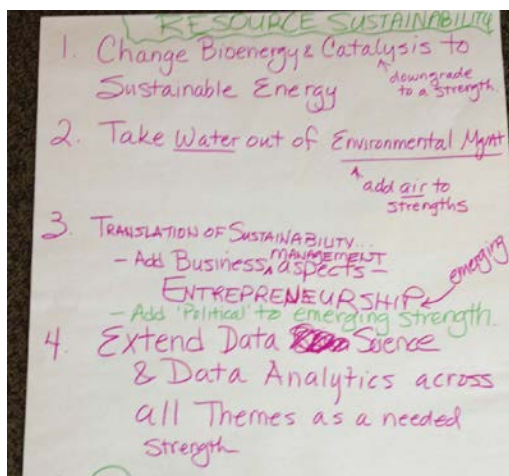 RESOURCE SUSTAINABILITY
1. Change Bioenergy & Catalysis to
downgrade
to a strength.
Sustainable Energy
2. Take Water out of Environmental Mgmt
add air to
strengths
3. TRANSLATION OF SUSTAINABILITY...
- Add Business MANAGEMENT aspects -
emerging
ENTREPRENEURSHIP
- Add 'Political' to emerging strength.
4. Extend Data Science
& Data Analytics across
all Themes as a needed
strength